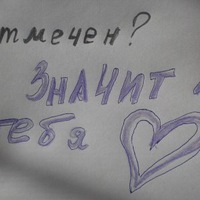 тмечен?
Значит
тебя